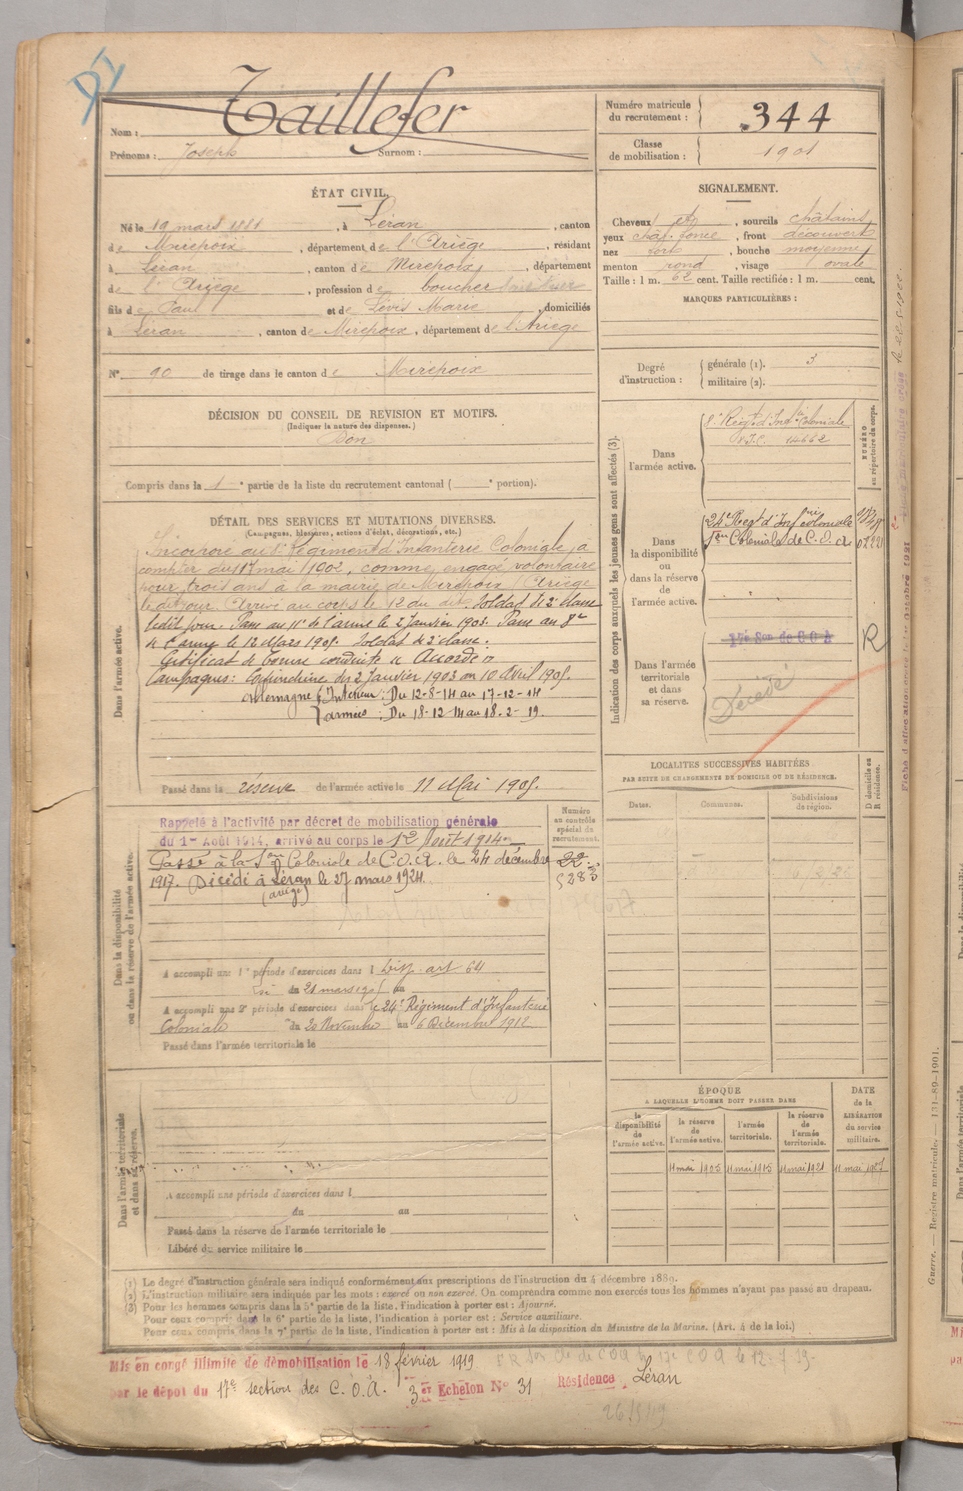 Taillefer
Nom :
Prénoms : Joseph Surnom :
Numéro matricule du recrutement : 344
Classe de mobilisation : 1901
ÉTAT CIVIL.
Né le 19 mars 1881, à Léran, canton
de Mirepoix, département de l'Ariège, résidant
à Léran, canton de Mirepoix, département
de l'Ariège, profession de boucher
fils de Paul et de Lévis Marie, domiciliés
à Léran, canton de Mirepoix, département de l'Ariège
N° 90 de tirage dans le canton de Mirepoix
SIGNALEMENT.
Cheveux et, sourcils châtains
yeux chât. foncé, front découvert
nez fort, bouche moyenne
menton rond, visage ovale
Taille : 1 m. 62 cent. Taille rectifiée : 1 m. cent.
MARQUES PARTICULIÈRES :
Degré d'instruction : générale (1). 3
militaire (2).
DÉCISION DU CONSEIL DE REVISION ET MOTIFS.
(Indiquer la nature des dispenses.)
Bon
Compris dans la 1e partie de la liste du recrutement cantonal ( e portion).
DÉTAIL DES SERVICES ET MUTATIONS DIVERSES.
(Campagnes, blessures, actions d'éclat, décorations, etc.)
Dans l'armée active.
Incorporé au 8e Régiment d'Infanterie Coloniale, à
compter du 11 mai 1902, comme engagé volontaire
pour trois ans à la mairie de Mirepoix (Ariège
le dit jour. Arrivé au corps le 12 du dit. Soldat de 2e classe
ledit jour. Passé au 11e de l'arme le 2 Janvier 1903. Passé au 8e
de l'arme le 12 Mars 1905. Soldat de 2e classe.
Certificat de bonne conduite "Accordé"
Campagnes : Cochinchine du 2 Janvier 1903 au 10 Avril 1905.
Allemagne { Intérieur : Du 12-8-14 au 17-12-14
armées : Du 18-12-14 au 18-2-19.
Passé dans la réserve de l'armée active le 11 Mai 1905.
Indication des corps auxquels les jeunes gens sont affectés (3).
NUMÉRO au répertoire du corps.
Dans l'armée active.
8e Régt d'Infie Coloniale
14662
Dans la disponibilité ou dans la réserve de l'armée active.
24e Regt d'Infrie coloniale
Son Coloniale de C.O.A.
02221
Dans l'armée territoriale et dans sa réserve.
17e Son de C O A
Décédé
R
LOCALITES SUCCESSIVES HABITÉES
PAR SUITE DE CHANGEMENTS DE DOMICILE OU DE RÉSIDENCE.
Dates. Communes. Subdivisions de région. D domicile ou R résidence.
Dans la disponibilité ou dans la réserve de l'armée active.
Numéro au contrôle spécial du recrutement.
Rappelé à l'activité par décret de mobilisation générale
du 1er Août 1914, arrivé au corps le 12 Août 1914
Passé à la Son Coloniale de C.O.A. le 24 décembre
1917. Décédé à Léran le 27 mars 1924.
(ariège)
A accompli une 1re période d'exercices dans l Disp. art 64
du 21 mars 1905 au
A accompli une 2e période d'exercices dans le 24e Régiment d'Infanterie
Coloniale du 20 Novembre au 6 Décembre 1912
Passé dans l'armée territoriale le
Dans l'armée territoriale et dans sa réserve.
A accompli une période d'exercices dans l
du au
Passé dans la réserve de l'armée territoriale le
Libéré du service militaire le
ÉPOQUE
A LAQUELLE L'HOMME DOIT PASSER DANS
la disponibilité de l'armée active. la réserve de l'armée active. l'armée territoriale. la réserve de l'armée territoriale.
DATE de la LIBÉRATION du service militaire.
11 mai 1905 11 mai 1915 11 mai 1921 11 mai 1927
(1) Le degré d'instruction générale sera indiqué conformément aux prescriptions de l'instruction du 4 décembre 1889.
(2) L'instruction militaire sera indiquée par les mots : exercé ou non exercé. On comprendra comme non exercés tous les hommes n'ayant pas passé au drapeau.
(3) Pour les hommes compris dans la 5e partie de la liste, l'indication à porter est : Ajourné.
Pour ceux compris dans la 6e partie de la liste, l'indication à porter est : Service auxiliaire.
Pour ceux compris dans la 7e partie de la liste, l'indication à porter est : Mis à la disposition du Ministre de la Marine. (Art. 4 de la loi.)
Mis en congé illimité de démobilisation le 18 février 1919
par le dépôt du 17e section des C.O.A. 3er Echelon N° 31 Résidence Léran
Guerre. — Registre matricule. — 131-89-1901.